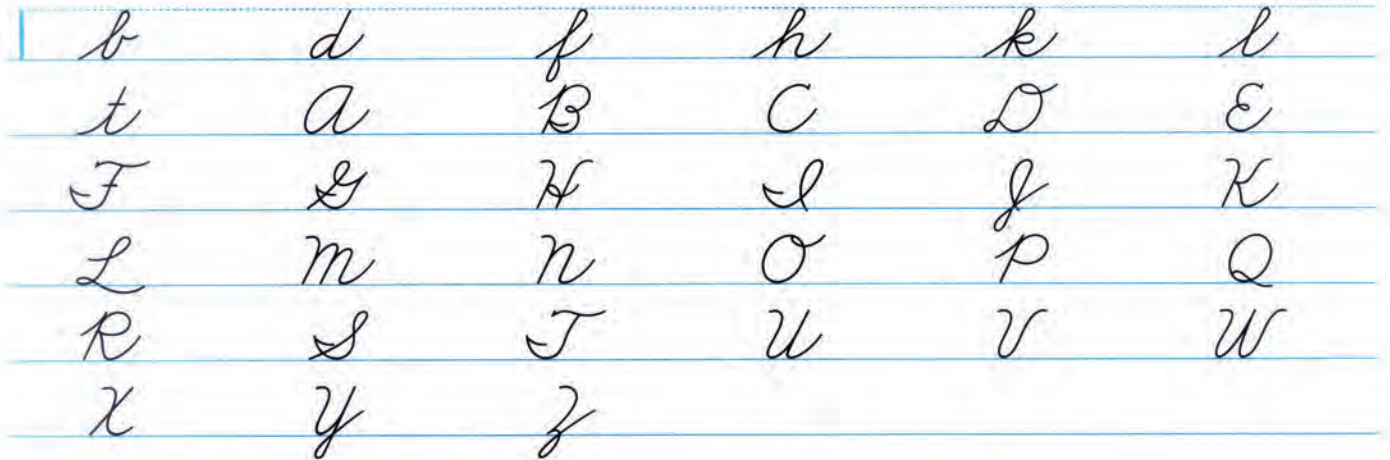 b d f h k l
t A B C D E
F G H I J K
L M N O P Q
R S T U V W
X Y Z